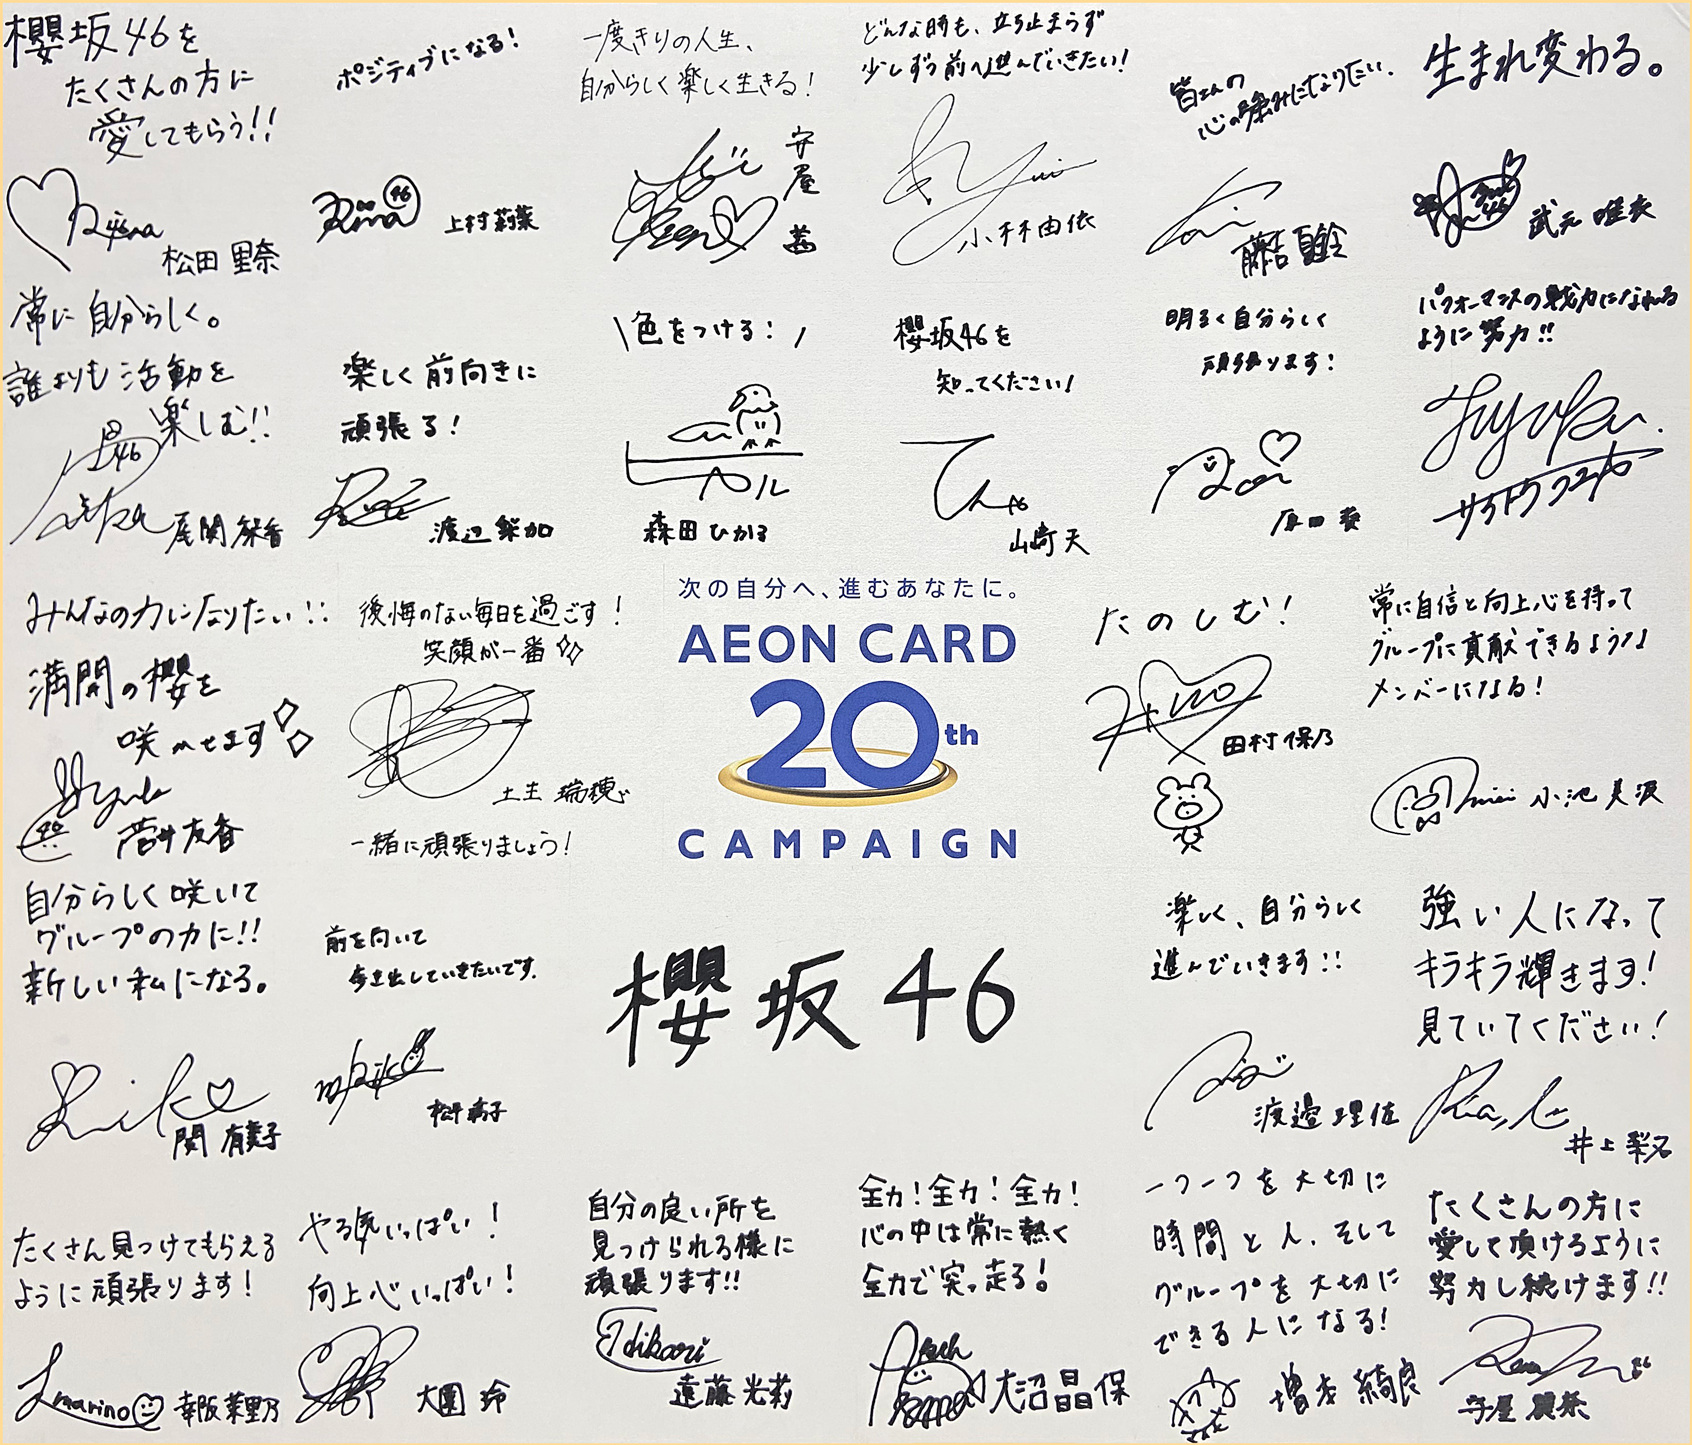 櫻坂46を
たくさんの方に
愛してもらう!!
Rina
松田里奈
ポジティブになる!
Rina
46
上村莉菜
一度きりの人生、
自分らしく楽しく生きる!
守屋茜
どんな時も、立ち止まらず
少しずつ前へ進んでいきたい!
Yui
小林由依
皆さんの
心の強みになりたい.
藤吉夏鈴
生まれ変わる。
46
武元唯衣
常に自分らしく。
誰よりも活動を
楽しむ!!
46
尾関梨香
楽しく前向きに
頑張る!
渡辺梨加
\色をつける! /
ヒカル
森田ひかる
櫻坂46を
知ってください!
てん
山﨑天
明るく自分らしく
頑張ります!
原田葵
パフォーマンスの戦力になれる
ように努力!!
Fuyuka.
サイトウフユカ
みんなの力になりたい!!
満開の櫻を
咲かせます
Yuuka
菅井友香
後悔のない毎日を過ごす!
笑顔が一番
土生瑞穂
一緒に頑張りましょう!
次の自分へ、進むあなたに。
AEON CARD
20th
CAMPAIGN
たのしむ!
Hono
田村保乃
常に自信と向上心を持って
グループに貢献できるような
メンバーになる!
minami
小池美波
自分らしく咲いて
グループの力に!!
新しい私になる。
Riko
関有美子
前を向いて
歩き出していきたいです.
Riko
松平璃子
櫻坂46
楽しく、自分らしく
進んでいきます!!
渡邉理佐
強い人になって
キラキラ輝きます!
見ていてください!
井上梨名
たくさん見つけてもらえる
ように頑張ります!
marino
幸阪茉里乃
やる気いっぱい!
向上心いっぱい!
大園玲
自分の良い所を
見つけられる様に
頑張ります!!
Hikari
遠藤光莉
全力!全力!全力!
心の中は常に熱く
全力で突っ走る!
大沼晶保
一つ一つを大切に
時間と人、そして
グループを大切に
できる人になる!
増本綺良
たくさんの方に
愛して頂けるように
努力し続けます!!
46
守屋麗奈